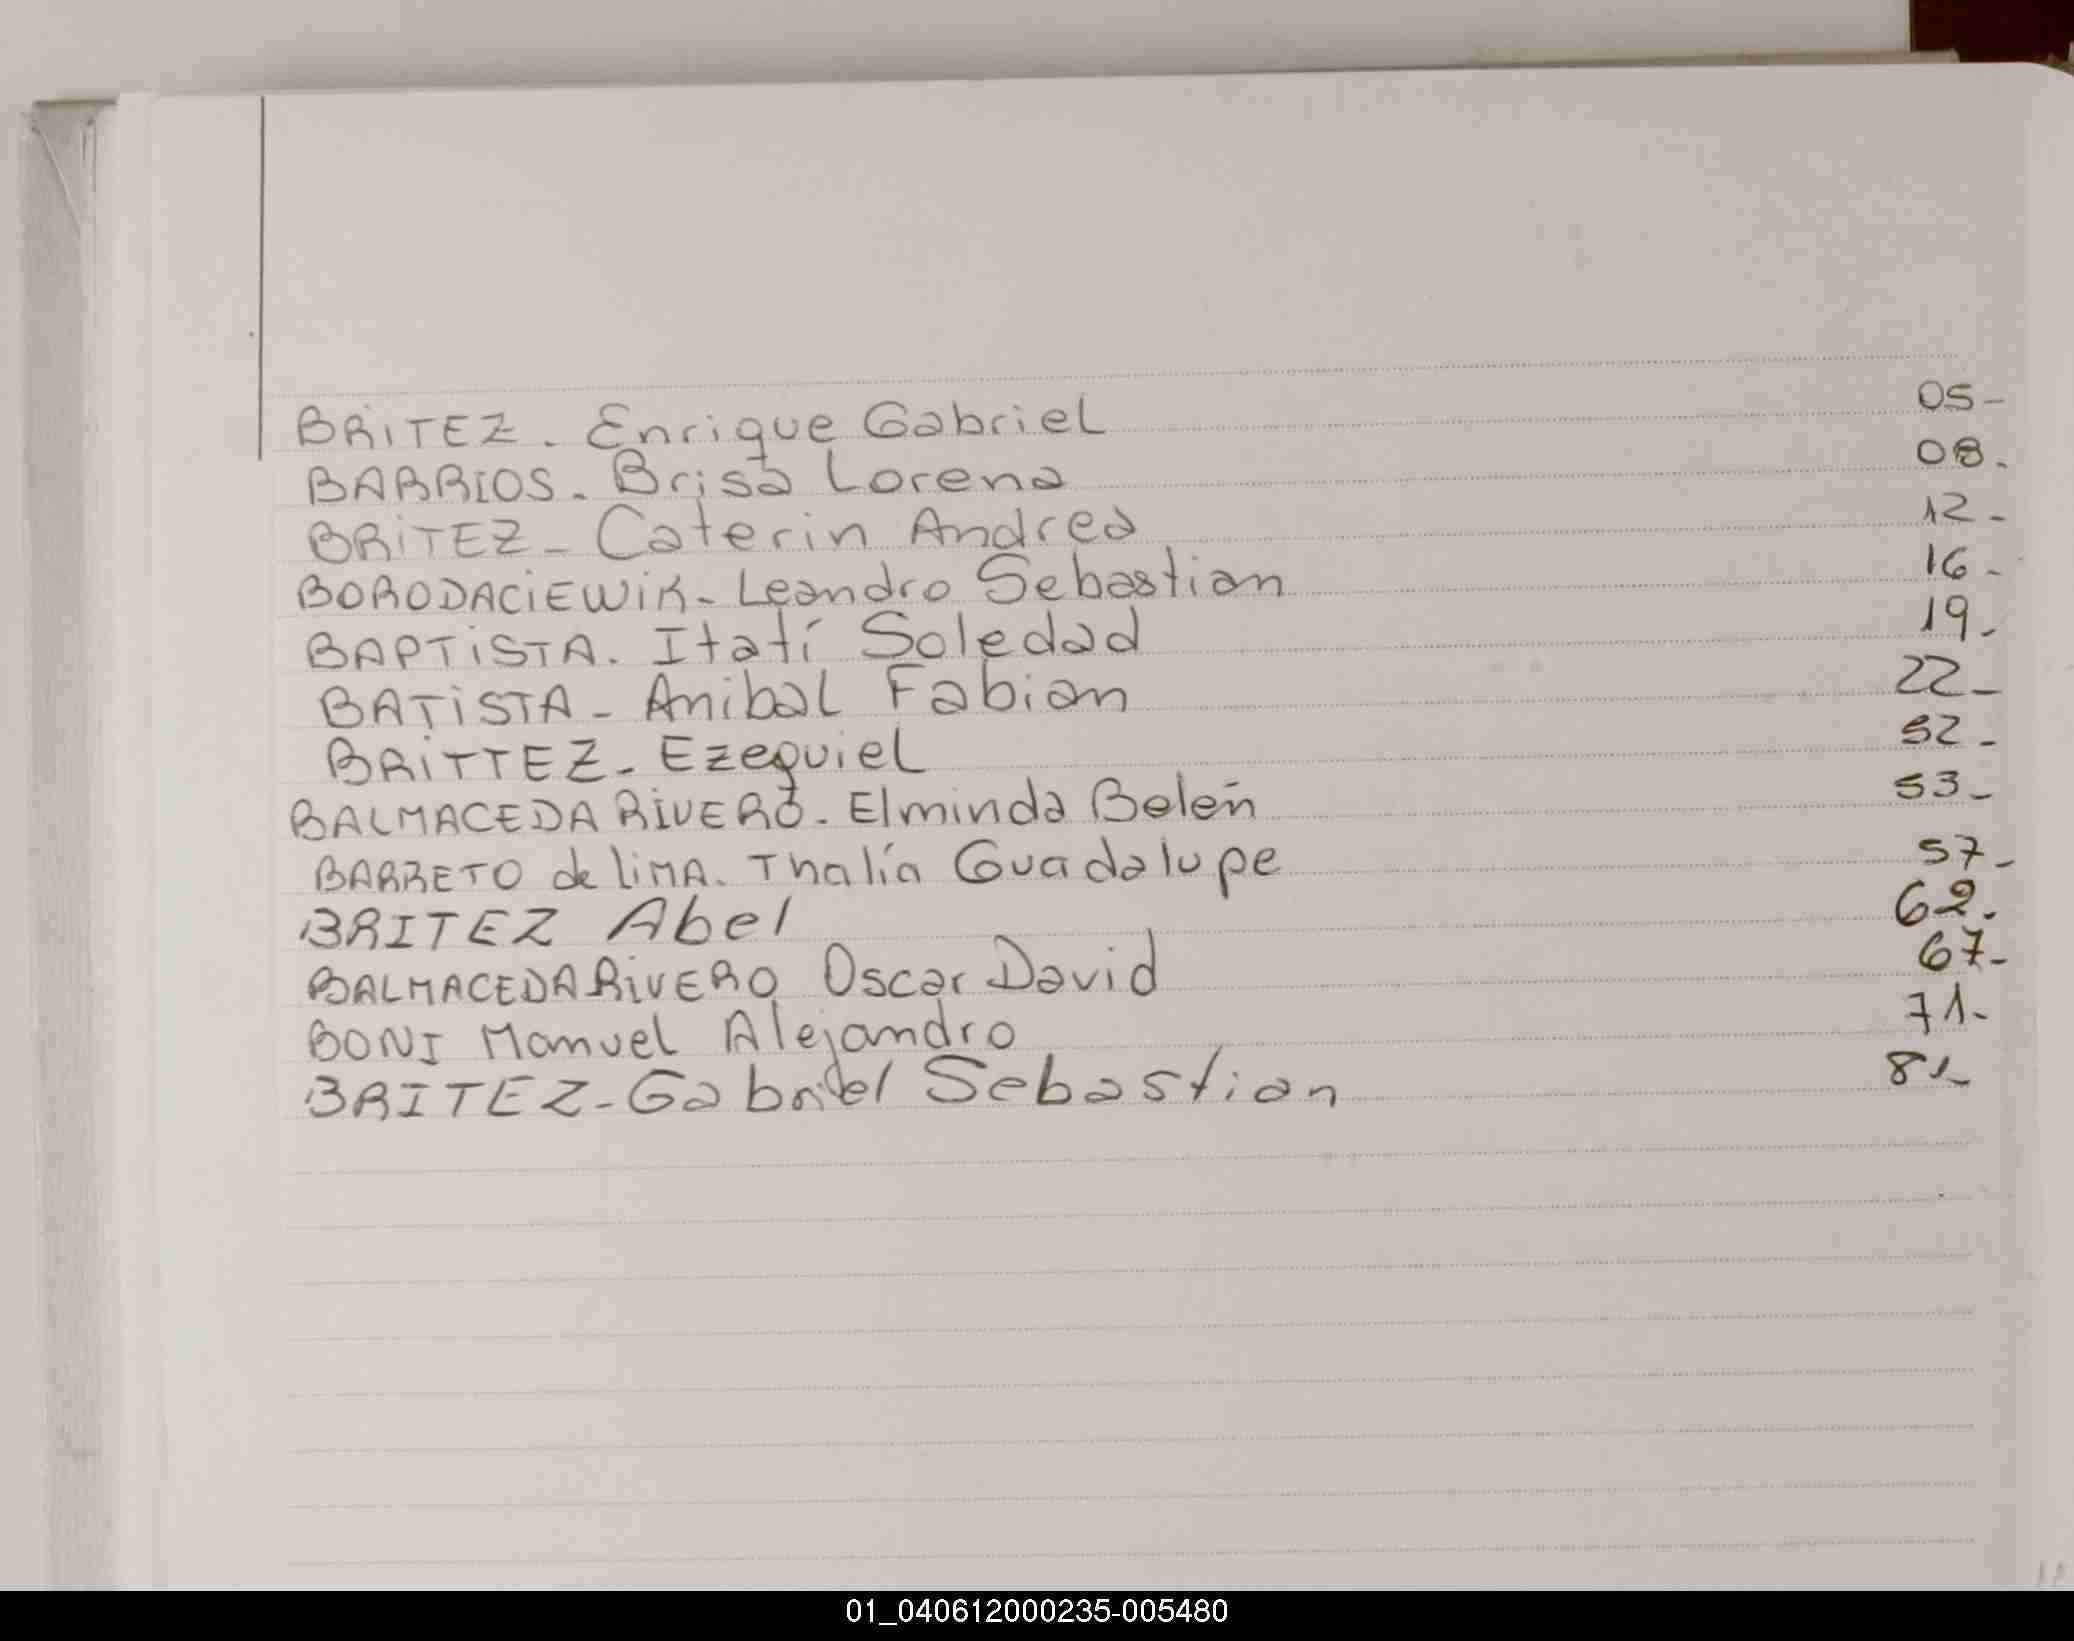 BRITEZ. Enrique Gabriel 05-
BARRIOS. Brisa Lorena 08.
BRITEZ- Caterin Andrea 12-
BORODACIEWIK- Leandro Sebastian 16-
BAPTISTA. Itatí Soledad 19-
BATISTA- Anibal Fabian 22-
BRITTEZ- Ezequiel 52-
BALMACEDA RIVERO. Elminda Belén 53-
BARRETO de LIMA. Thalía Guadalupe 57-
BRITEZ Abel 62.
BALMACEDA RIVERO Oscar David 67-
BONI Manuel Alejandro 71-
BRITEZ-Gabriel Sebastian 81-
01_040612000235-005480